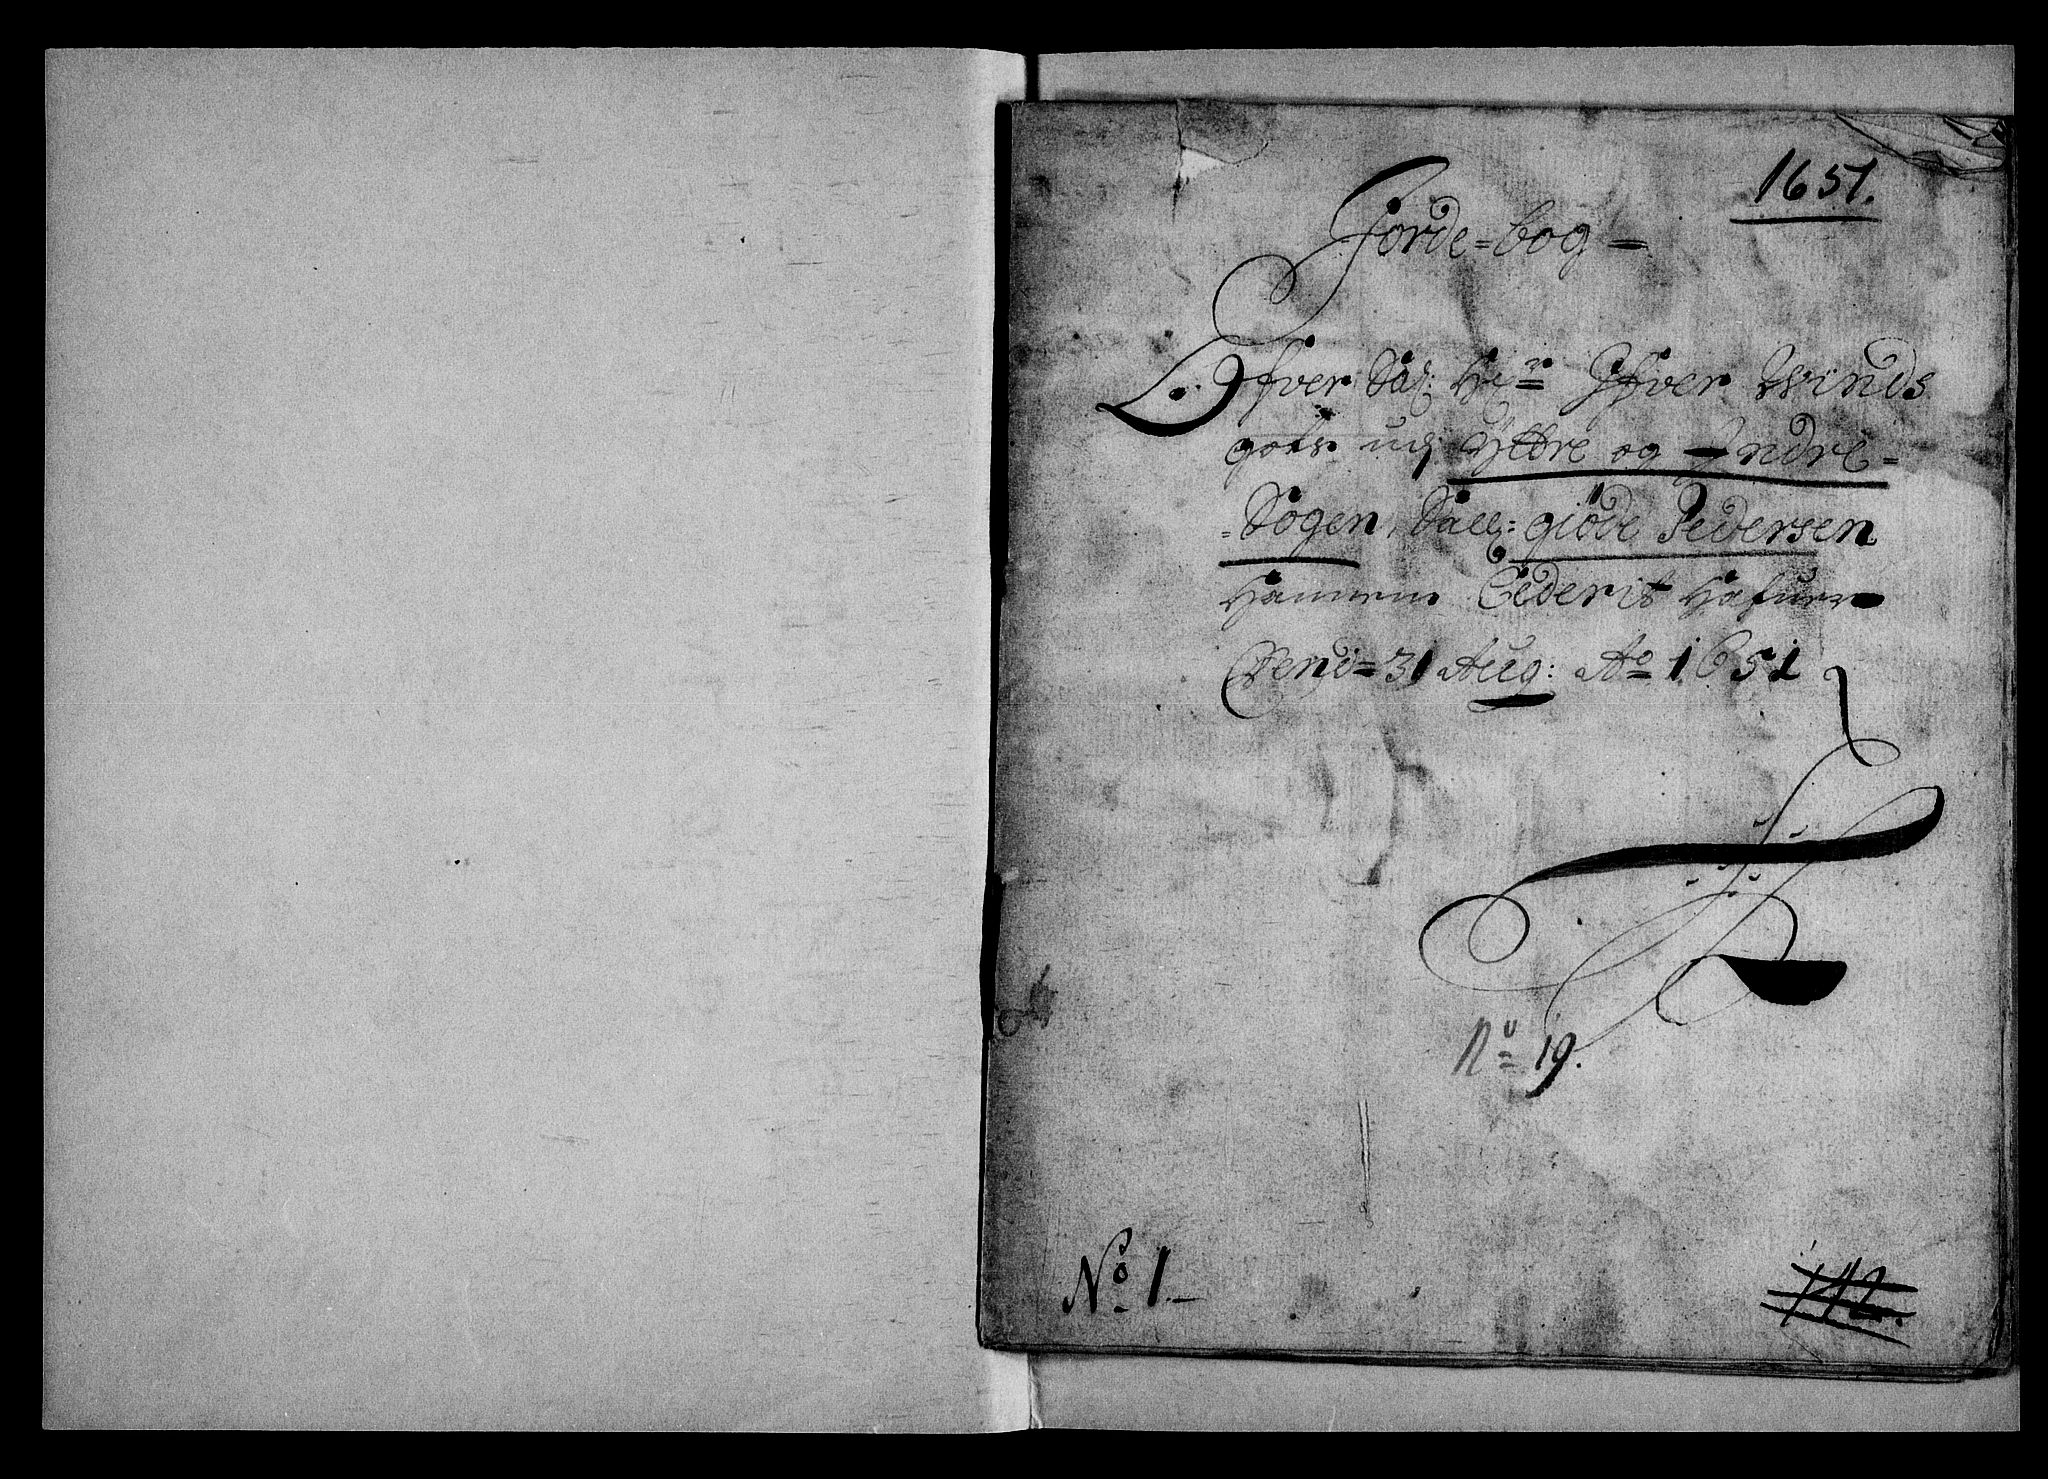 1651.
Jorde=bog
Ofver Sal: Hr: Ifver Winds
gots udj Ÿttre og Indre=
=Sogen, Sall: giøde Pedersen
Hannem Cederit Hafuer
Dend= 31 Aug: Ao 1651
No 19.
No 1.
142.